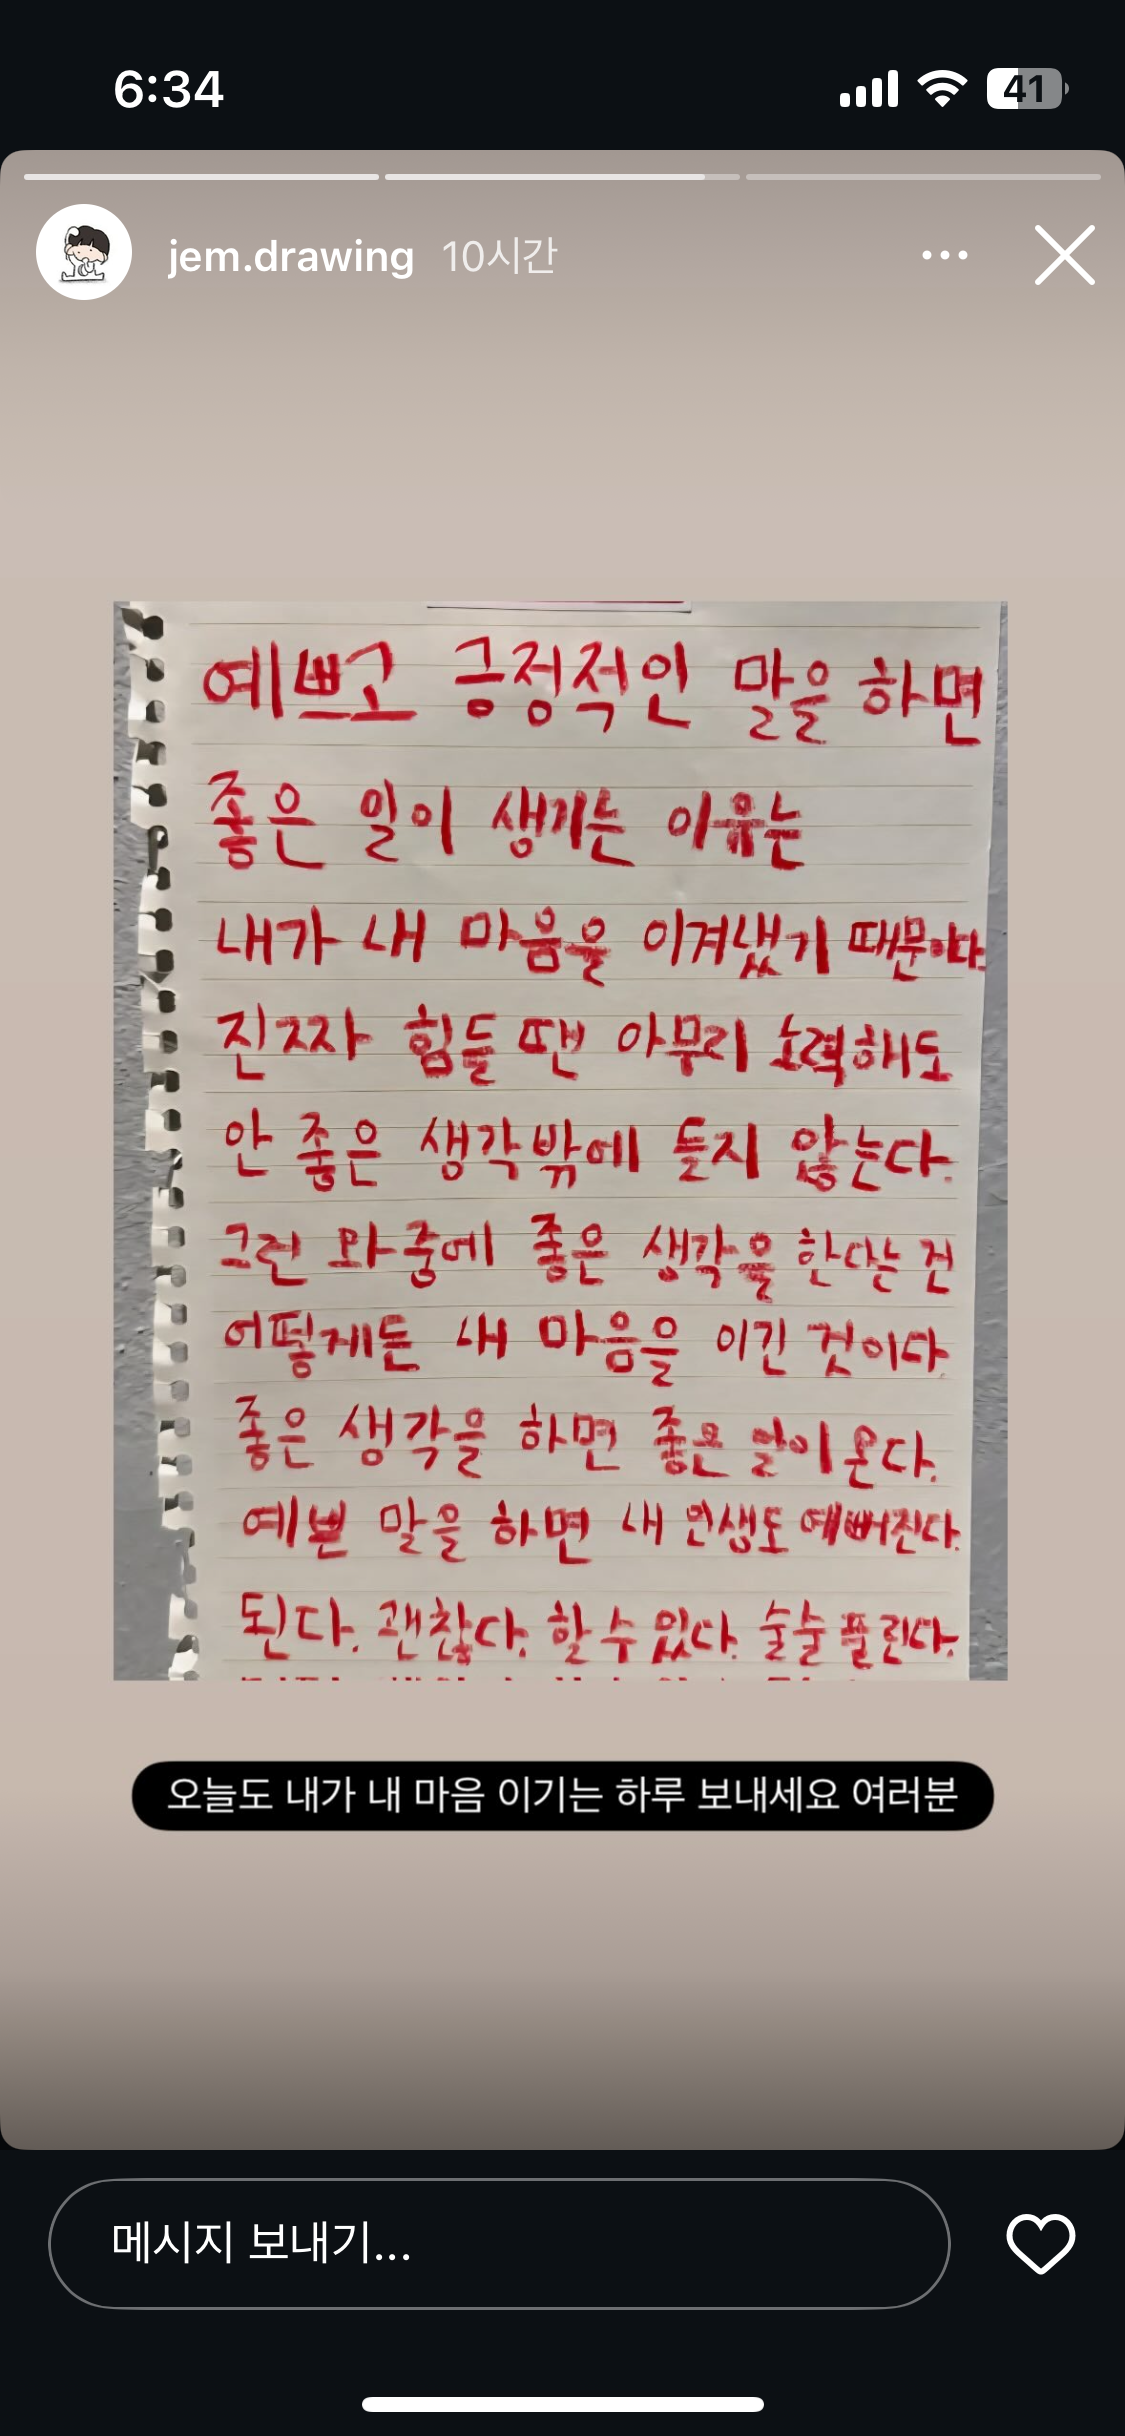 6:34
41
jem.drawing 10시간
예쁘고 긍정적인 말을 하면
좋은 일이 생기는 이유는
내가 내 마음을 이겨냈기 때문이다.
진짜 힘들 땐 아무리 노력해도
안 좋은 생각밖에 들지 않는다.
그런 와중에 좋은 생각을 한다는 건
어떻게든 내 마음을 이긴 것이다.
좋은 생각을 하면 좋은 일이 온다.
예쁜 말을 하면 내 인생도 예뻐진다.
된다. 괜찮다. 할 수 있다. 술술 풀린다.
오늘도 내가 내 마음 이기는 하루 보내세요 여러분
메시지 보내기...